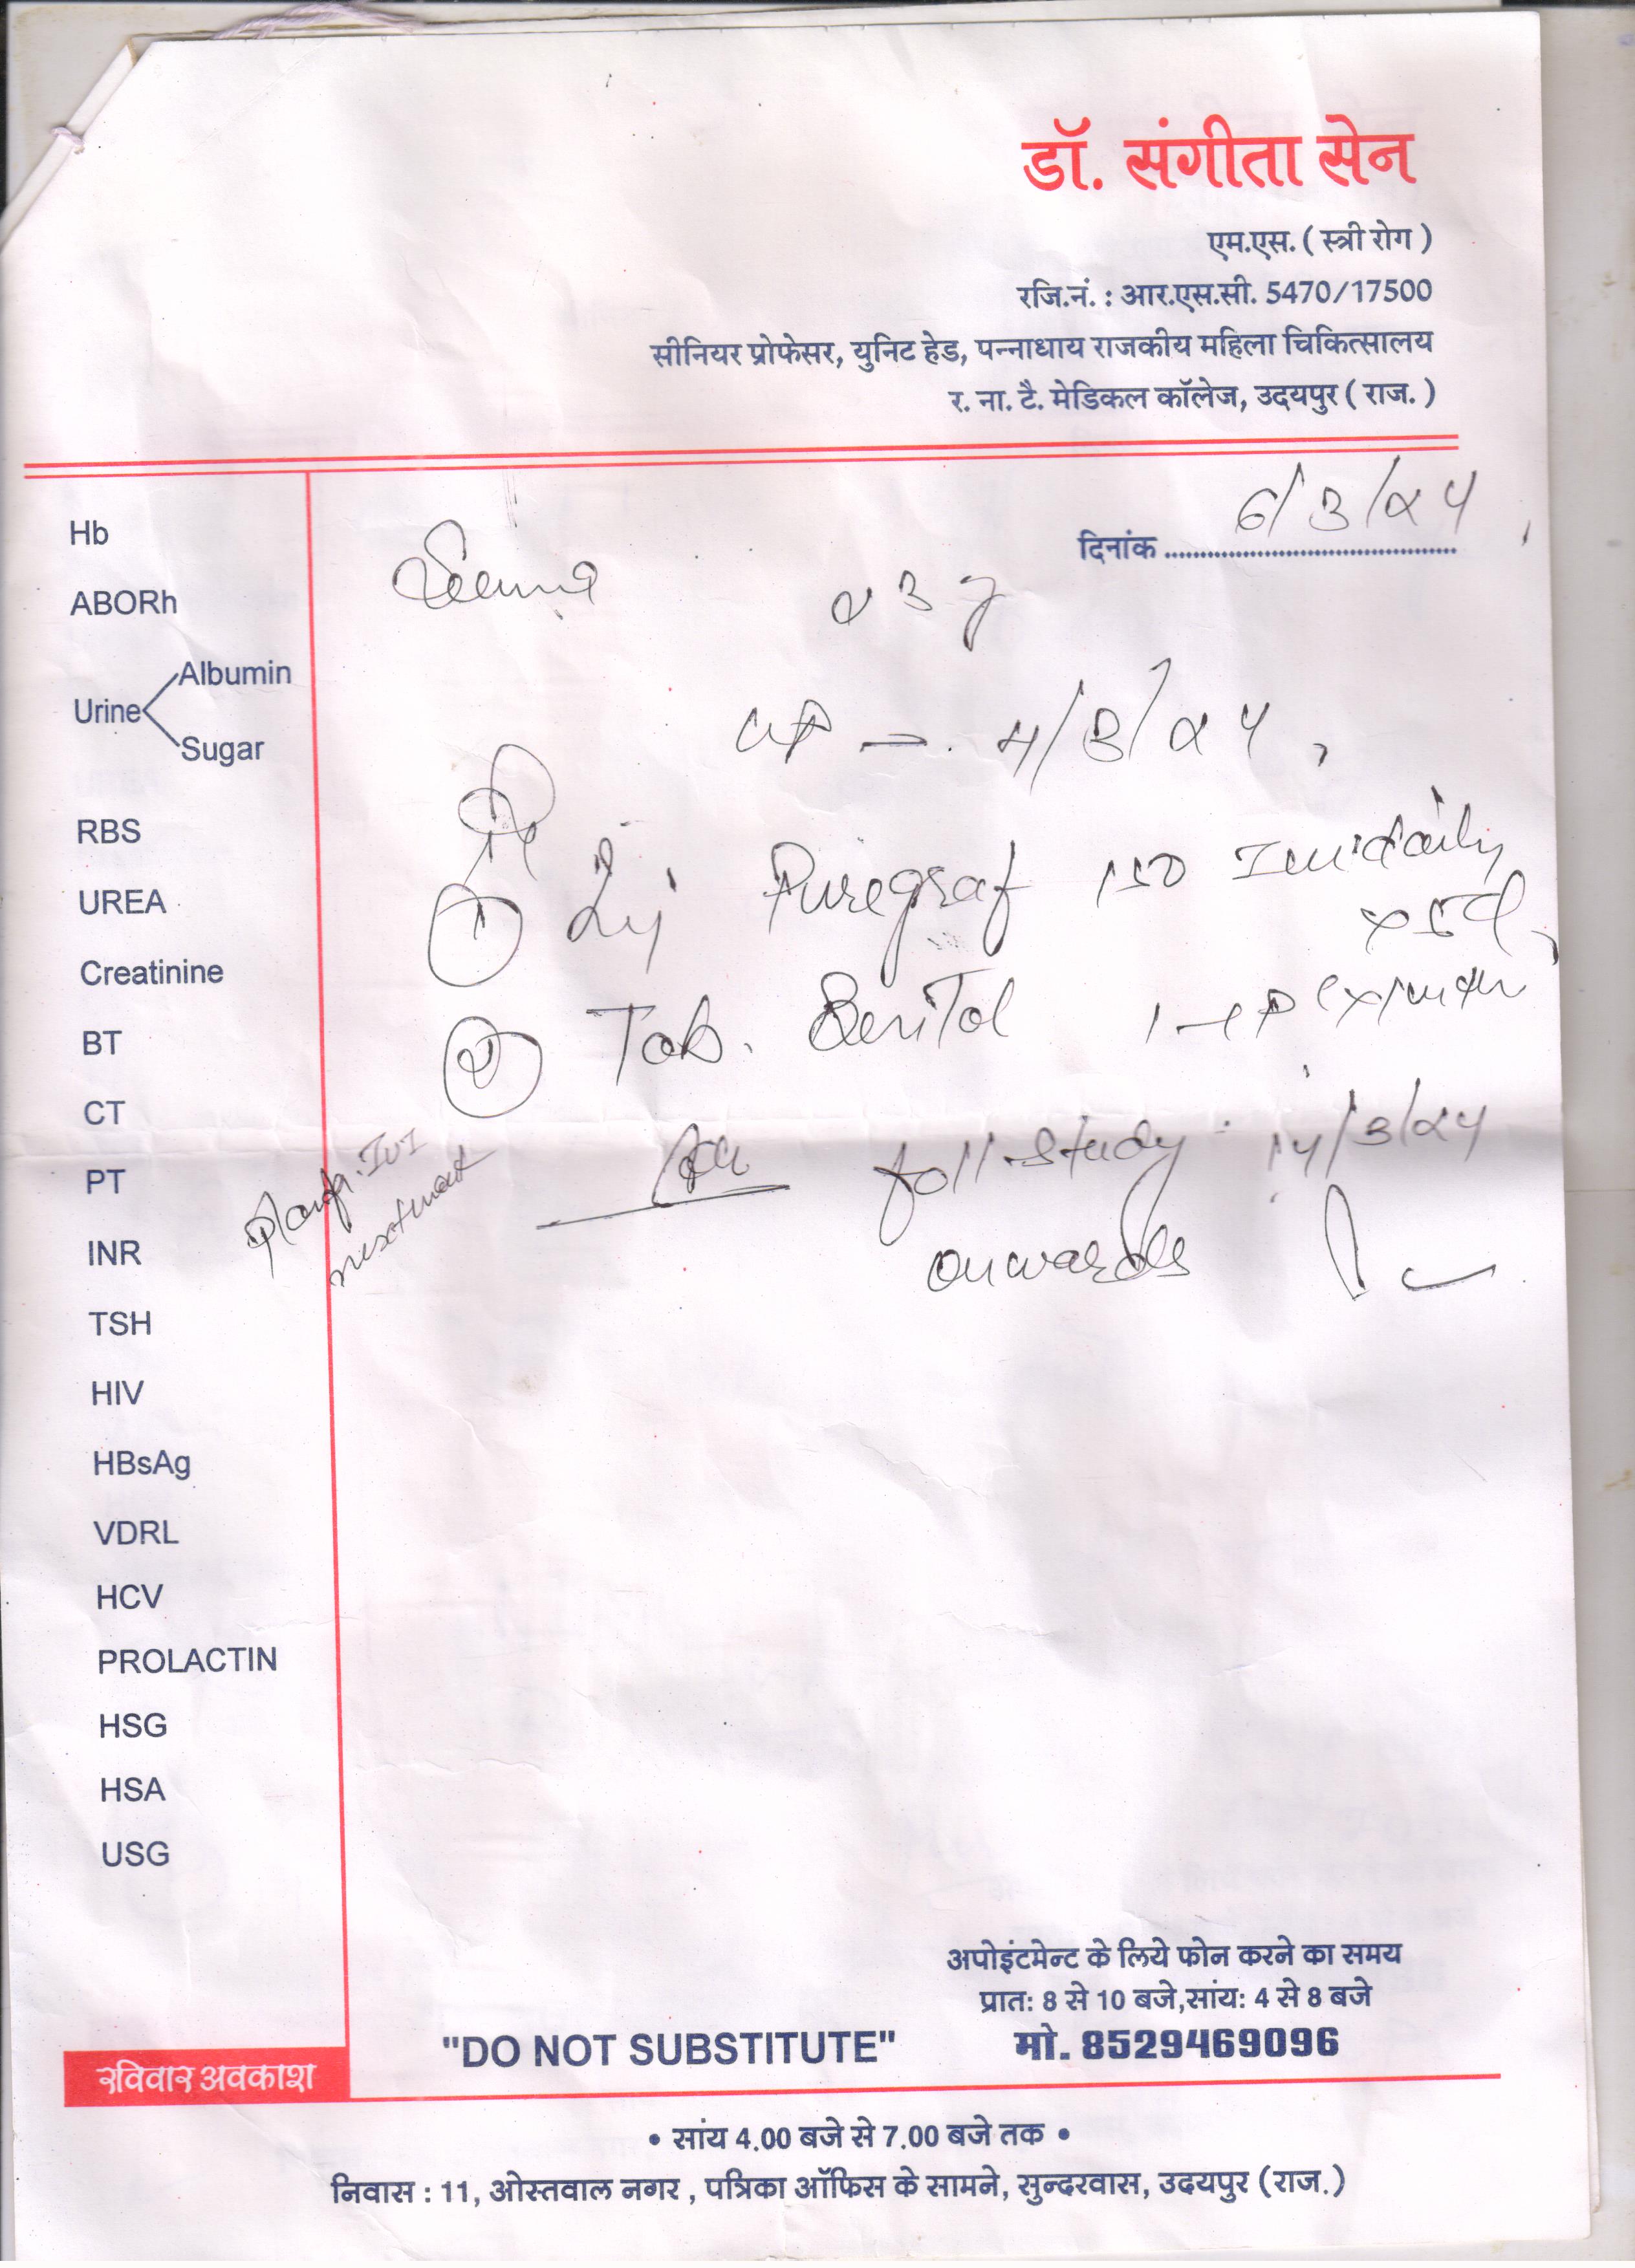 डॉ. संगीता सेन
एम.एस. ( स्त्री रोग )
रजि.नं. : आर.एस.सी. 5470/17500
सीनियर प्रोफेसर, युनिट हेड, पन्नाधाय राजकीय महिला चिकित्सालय
र. ना. टै. मेडिकल कॉलेज, उदयपुर ( राज. )
दिनांक 6/3/24
Hb
ABORh
Urine
Albumin
Sugar
RBS
UREA
Creatinine
BT
CT
PT
INR
TSH
HIV
HBsAg
VDRL
HCV
PROLACTIN
HSG
HSA
USG
23 y
4/3/24
① Inj Puregraf 150 daily
② Tab.
foll study 14/3/24
onwards
IUI
next
अपोइंटमेन्ट के लिये फोन करने का समय
प्रात: 8 से 10 बजे,सांय: 4 से 8 बजे
मो. 8529469096
"DO NOT SUBSTITUTE"
रविवार अवकाश
• सांय 4.00 बजे से 7.00 बजे तक •
निवास : 11, ओस्तवाल नगर , पत्रिका ऑफिस के सामने, सुन्दरवास, उदयपुर (राज.)